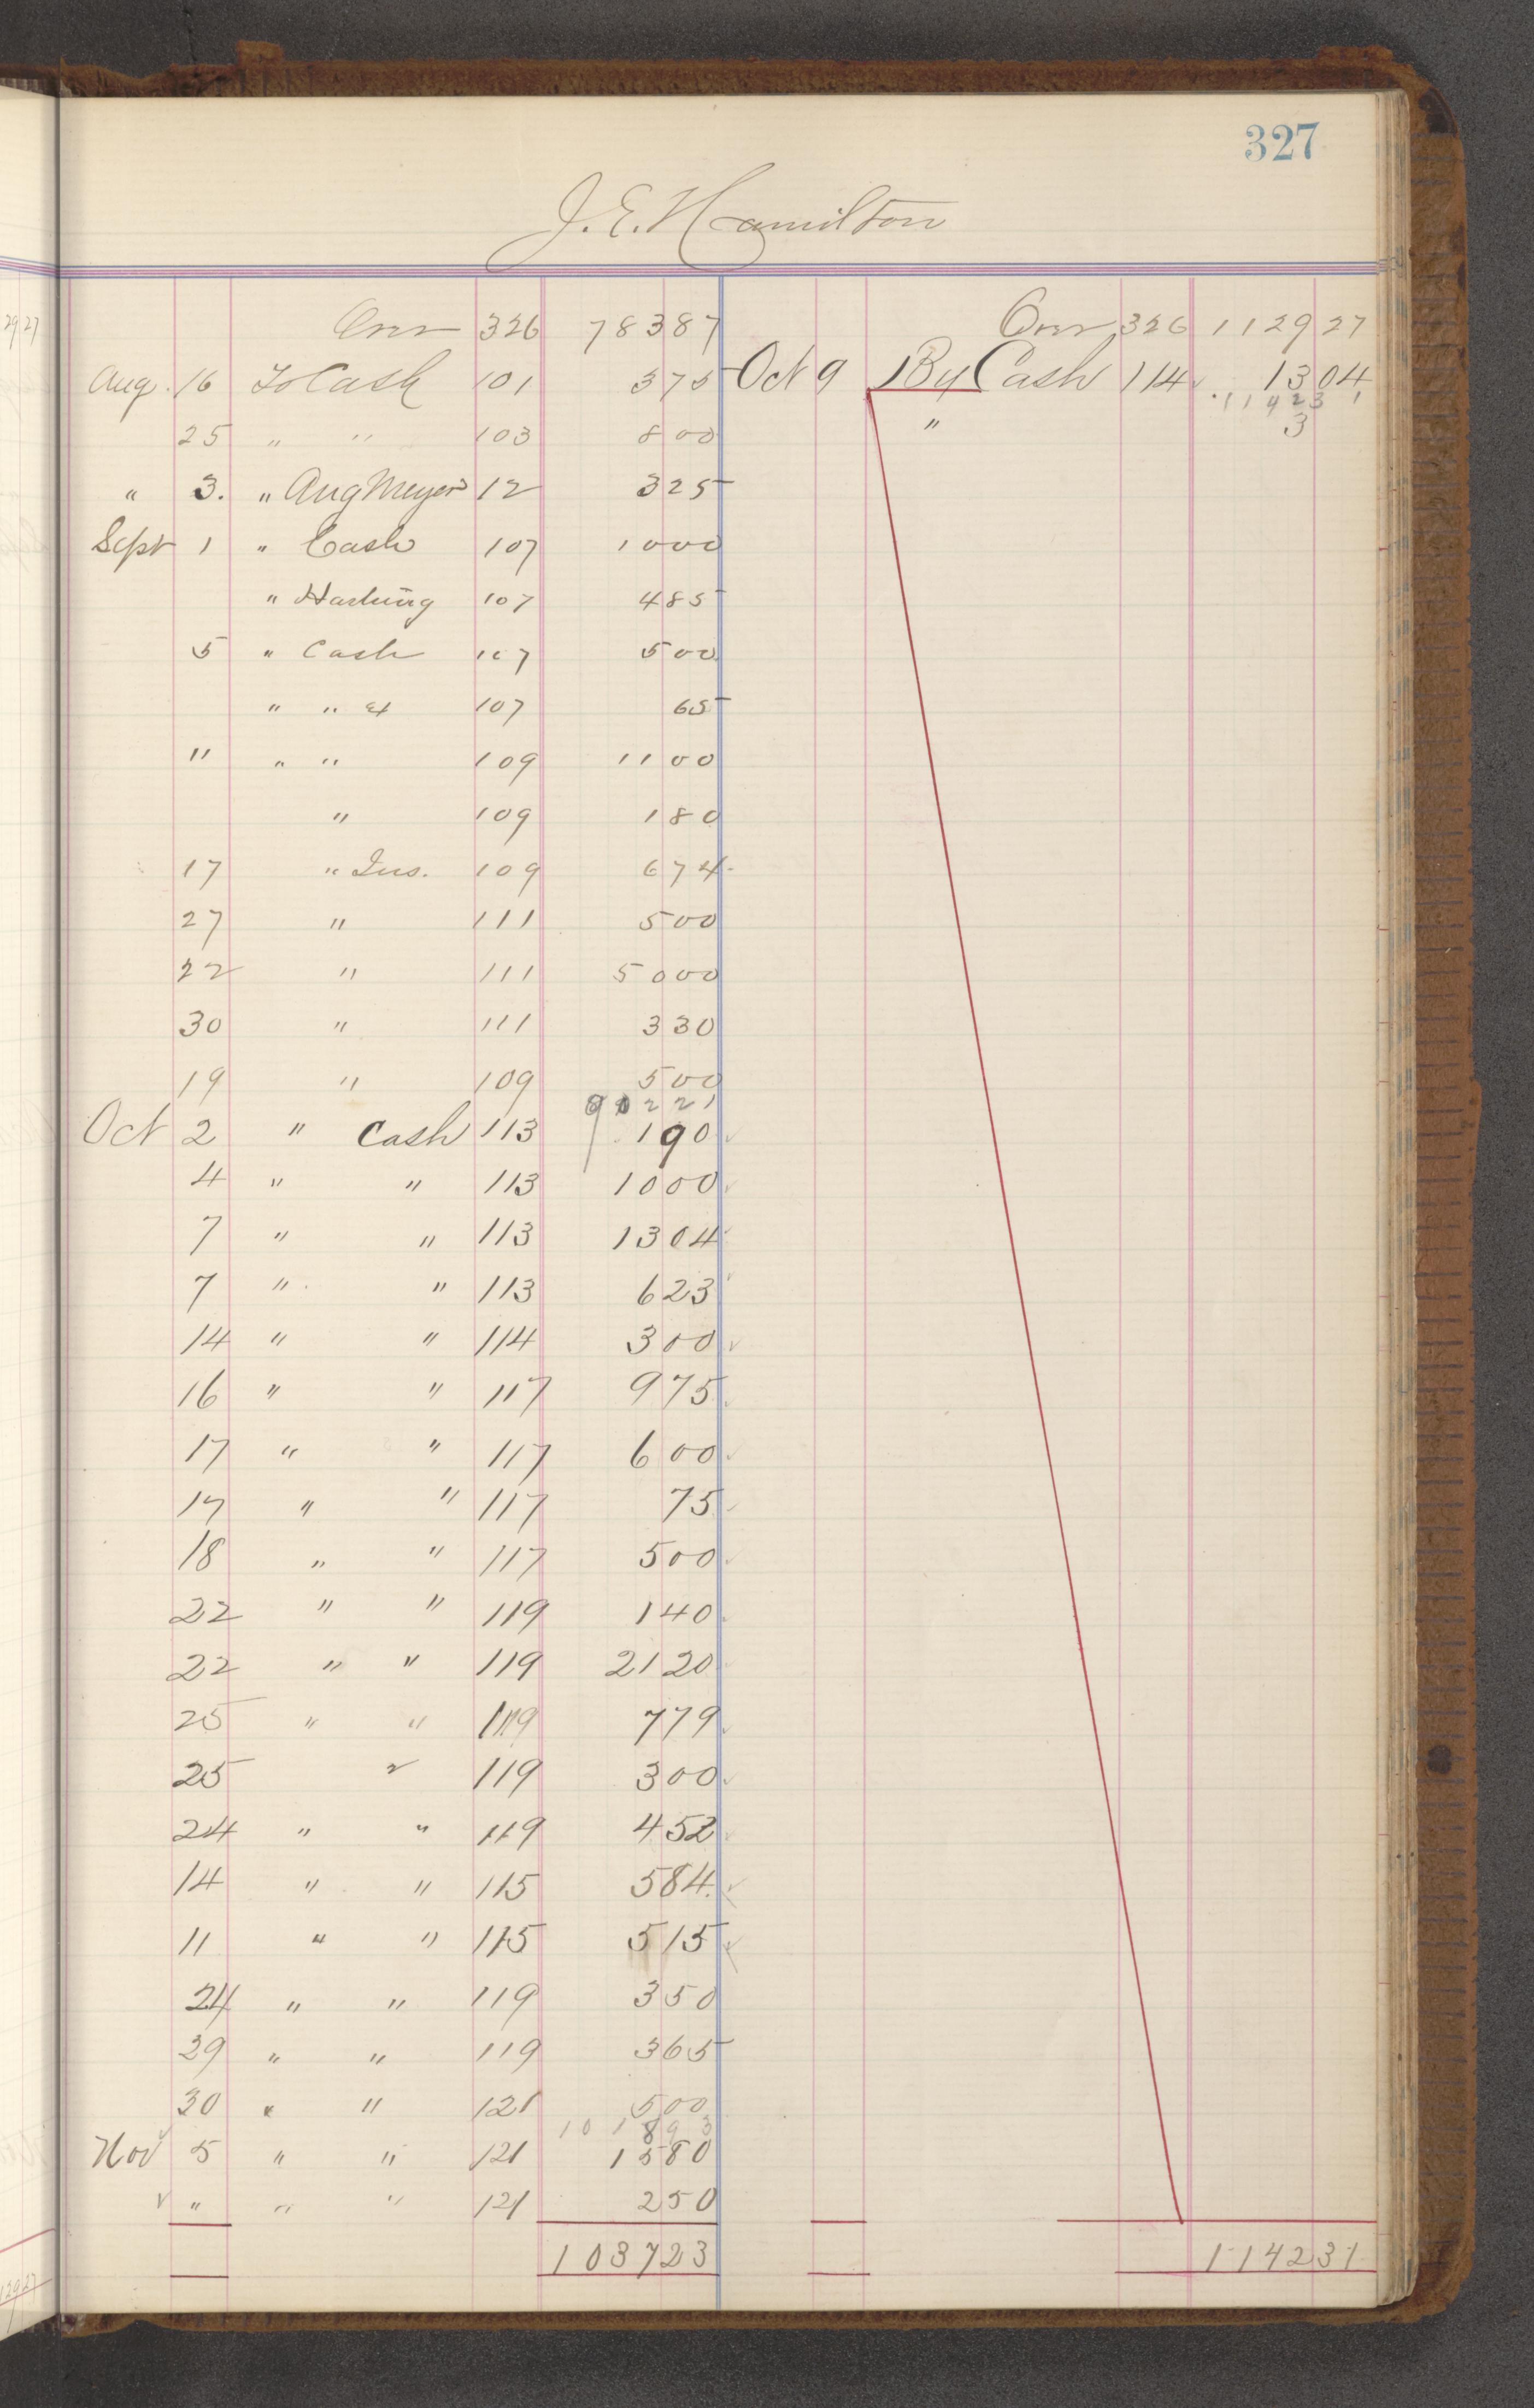 327
J. E. Hamilton
Over 326 783 87
Aug. 16 To Cash 101 3 75
25 " " 103 8 00
" 3. " Aug Meyer 12 3 25
Sept 1 " Cash 107 10 00
" Hartung 107 4 85
5 " Cash 107 5 00
" " " 107 65
" " " 109 11 00
" 109 1 80
17 " Ins. 109 6 74
27 " 111 5 00
22 " 111 50 00
30 " 111 3 30
19 " 109 5 00
902 21
Oct 2 " Cash 113 1 90
4 " " 113 10 00
7 " " 113 13 04
7 " " 113 6 23
14 " " 114 3 00
16 " " 117 9 75
17 " " 117 6 00
17 " " 117 75
18 " " 117 5 00
22 " " 119 1 40
22 " " 119 21 20
25 " " 119 7 79
25 " 119 3 00
24 " " 119 4 52
14 " " 115 5 84
11 " " 115 5 15
24 " " 119 3 50
29 " " 119 3 65
30 " " 121 5 00
1018 93
Nov 5 " " 121 15 80
" " " 121 2 50
1037 23
Over 326 1129 27
Oct 9 By Cash 114 13 04
1142 31
" 3
1142 31